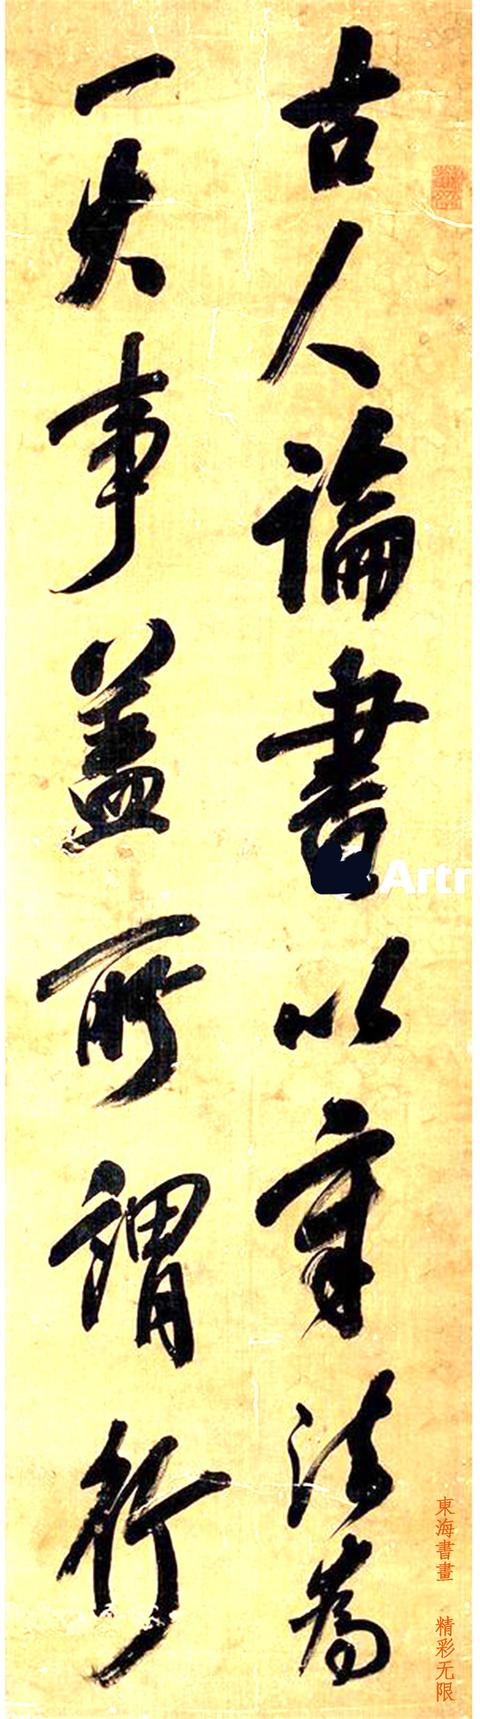 古人論書以章法為
一大事蓋所謂行
Artr
東海書畫 精彩无限